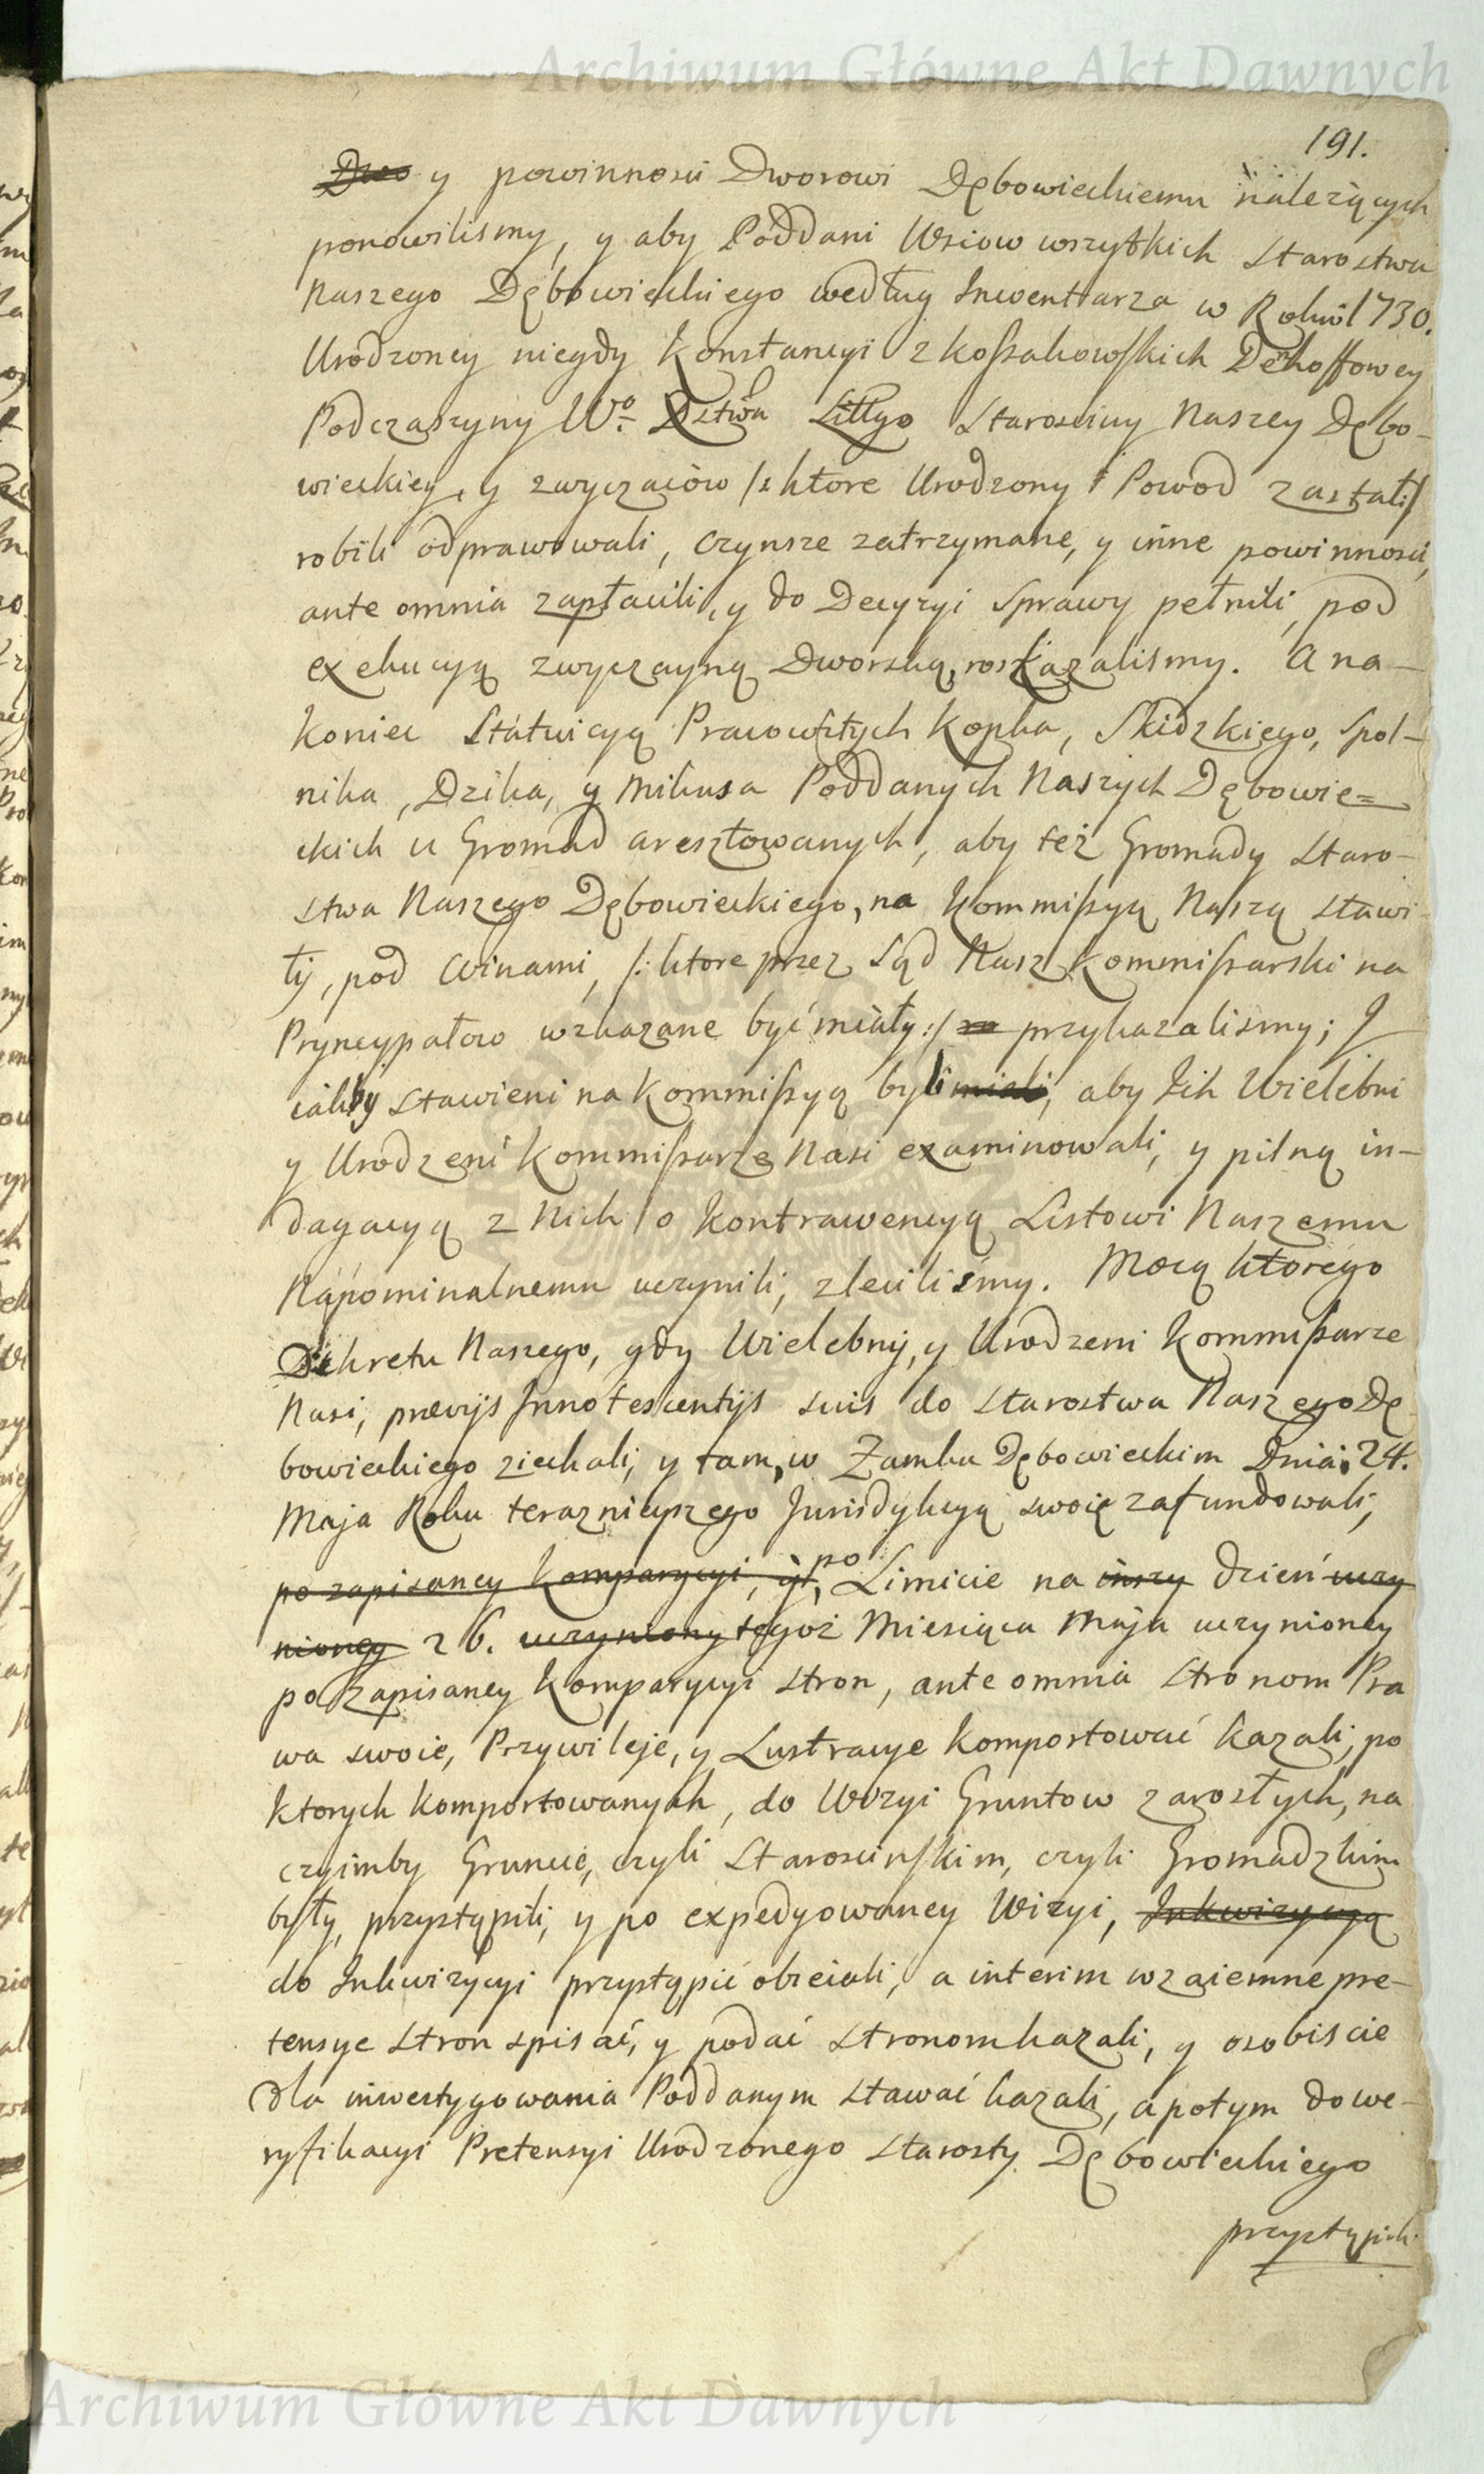 Archiwum Główne Akt Dawnych
191.
Dwo y powinnosci Dworowi Dębowieckiemu należących
ponowilismy, y aby Poddani Wsiow wszytkich Starostwa
Naszego Dębowieckiego według Inwentarza w Roku 1730.
Urodzoney niegdy Konstancyi z Kossakowskich Denhoffowey
Podczaszyny Wo. Xstwa Littgo Starosciny Naszey Dębo-
wieckiey, y zwyczaiow /: ktore Urodzony Powod zastał :/
robili odprawowali, czynsze zatrzymane, y inne powinnosci,
ante omnia zapłacili, y do Decyzyi Sprawy pełnili, pod
exekucyą zwyczayną Dworską, roskazalismy. A na-
koniec Statuicyą Pracowitych Kopka, Skidzkiego, Spol-
nika, Dzika, y Mikusa Poddanych Naszych Dębowie=
ckich u Gromad aresztowanych, aby też Gromady Staro-
stwa Naszego Dębowieckiego, na Kommissyą Naszą stawi-
ły, pod winami, /: ktore przez Sąd Nasz Kommissarski na
Pryncypałow wskazane być miały :/ za przykazalismy; J
iakby stawieni na Kommissyą byli mieli, aby Jch Wielebni
y Urodzeni Kommissarze Nasi examinowali, y pilną in-
dagacyą z Nich o kontrawencyą Listowi Naszemu
Napominalnemu uczynili, zlecilismy. Mocą ktorego
Dekretu Naszego, gdy Wielebny, y Urodzeni Kommissarze
Nasi, praevijs Innotescentijs suis do Starostwa Naszego Dę
bowieckiego ziechali, y tam, w Zamku Dębowieckim Dnia 24.
Maja Roku teraznieyszego Jurisdykcyą swoię zafundowali,
po zapisaney Komparycyi, y, po Limicie na inszy dzień uczy
nioney 26. uczyniony tegoż Miesiąca Maja uczynioney
po zapisaney Komparycyi stron, ante omnia Stronom Pra
wa swoie, Przywileje, y Lustracye komportować kazali, po
ktorych komportowanych, do Wizyi Gruntow zarosłych, na
czyimby Gruncie, czyli Staroscinskim, czyli Gromadzkim
były, przystąpili, y po expedyowaney Wizyi, Inkwizycyą
do Inkwizycyi przystąpić obiecali, a interim wzaiemne pre-
tensye Stron spisać, y podać Stronom kazali, y osobiscie
dla inwestygowania Poddanym stawać kazali, a potym do we-
ryfikacyi Pretensyi Urodzonego Starosty Dębowieckiego
przystąpili
Archiwum Główne Akt Dawnych